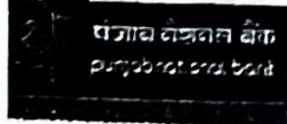 पंजाब नैशनल बैंक
punjab national bank